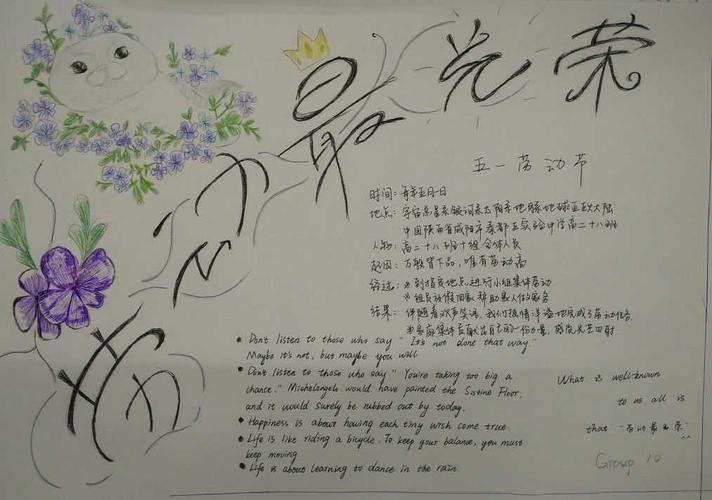 劳动最光荣
五一劳动节
时间：每年五月一日
地点：宇宙总星系银河系太阳系地球亚欧大陆
中国陕西省咸阳市秦都区实验中学高二十八班
人物：高二十八班十组全体人员
起因：万般皆下品，唯有劳动高
经过：①到指定地点进行小组集体劳动
②组员放假回家帮助家人做家务
结果：伴随着欢声笑语，我们热情洋溢地完成了劳动任务
为家庭集体贡献出自己的一份力量
• Don't listen to those who say " It's not done that way"
Maybe it's not, but maybe you will
• Don't listen to those who say " You're taking too big a
chance." Michelangelo would have painted the Sistine Floor,
and it would surely be rubbed out by today.
• Happiness is about having each tiny wish come true
• Life is like riding a bicycle. To keep your balance, you must
keep moving
• Life is about learning to dance in the rain.
What is well-known
to us all is
that "劳动最光荣"
Group 10